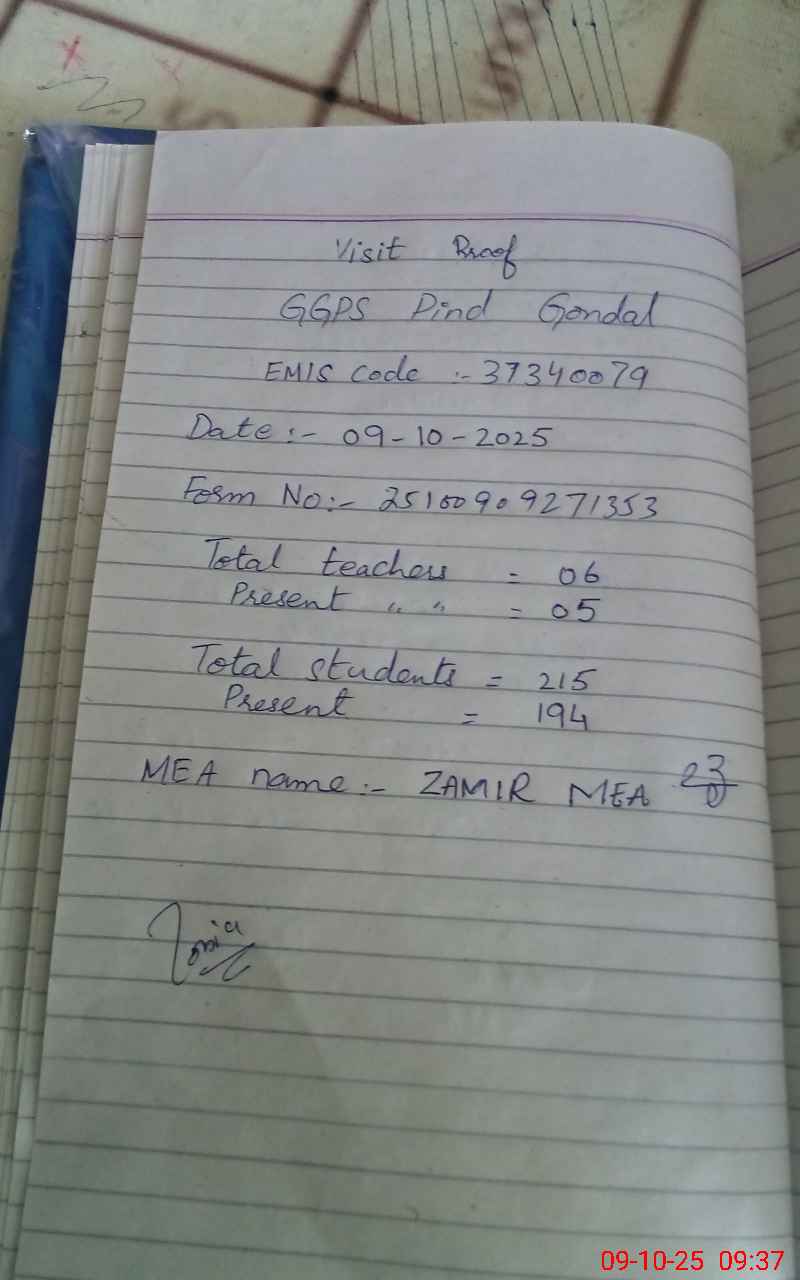 Visit Proof
GGPS Pind Gondal
EMIS code :- 37340079
Date :- 09-10-2025
Form No:- 25100909271353
Total teachers = 06
Present " " = 05
Total students = 215
Present = 194
MEA name:- ZAMIR MEA
09-10-25 09:37